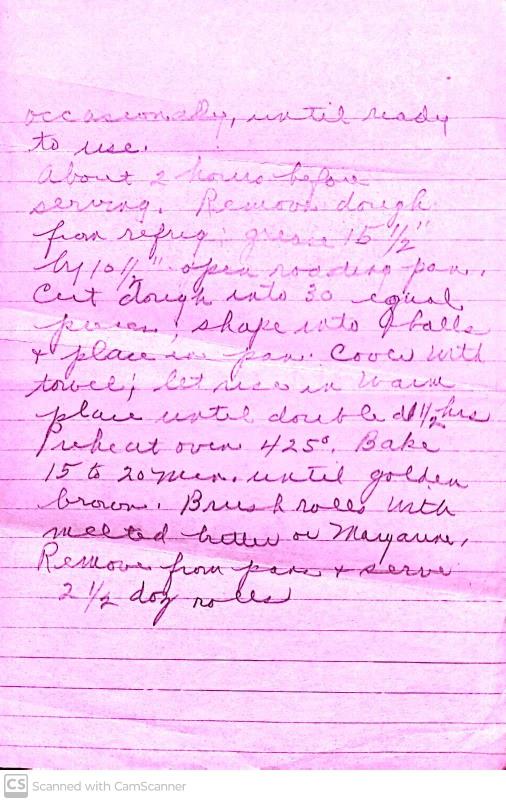 occasionally, until ready
to use.
About 2 hours before
serving. Remove dough
from refrig grease 15 1/2"
by 10 1/2" open roasting pan.
Cut dough into 30 equal
pieces; shape into balls
+ place in pan. Cover with
towel; let rise in warm
place until doubled 1 1/2 hrs
Preheat oven 425°. Bake
15 to 20 min. until golden
brown. Brush rolls with
melted butter or Margarine.
Remove from pan + serve
2 1/2 doz rolls
CS Scanned with CamScanner